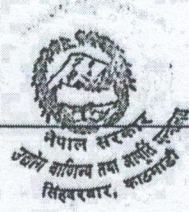 नेपाल सरकार
उद्योग वाणिज्य तथा आपूर्ति मन्त्रालय
सिंहदरबार, काठमाडौं